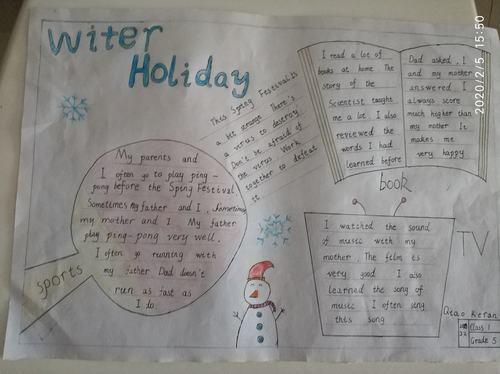 Witer
Holiday
This Spring Festival is
a bit strange There is
a virus to destroy
Don't be afraid of
the virus Work
together to defeat
it
I read a lot of
books at home The
story of the
Scientist taught
me a lot. I also
reviewed the
words I had
learned before
Dad asked, I
and my mother
answered I
always score
much higher than
my mother It
makes me
very happy
book
My parents and
I often go to play ping-
pong before the Sping Festival
Sometimes my father and I, Sometimes
my mother and I My father
play ping-pong very well.
I often go running with
my father Dad doesn't
run as fast as
I do.
sports
I watched the sound
of music with my
mother. The film is
very good I also
learned the song of
music I often sing
this song
TV
Keran
Class 1
Grade 5
2020/2/5 15:50